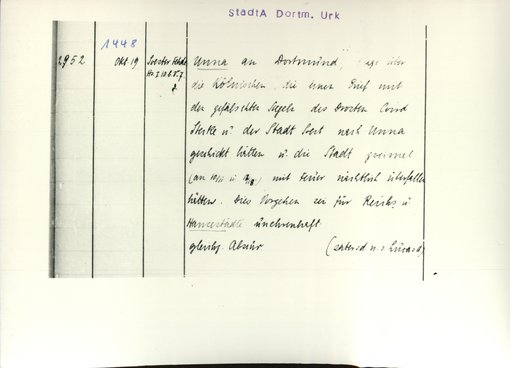 StadtA Dortm. Urk
1448
2952
Okt. 19
Soester Fehde
Unna an Dortmund, über
die Kölnischen, die einen Brief mit
den gefälschten Siegeln des Drosten Cord
Sterke u der Stadt Soest nach Unna
geschickt hätten u. die Stadt zweimal
mit Feuer nächtlich überfallen
hätten. Dies Vorgehen sei für Reichs u
Hansestädte unehrenhaft
gleichz. Abschr